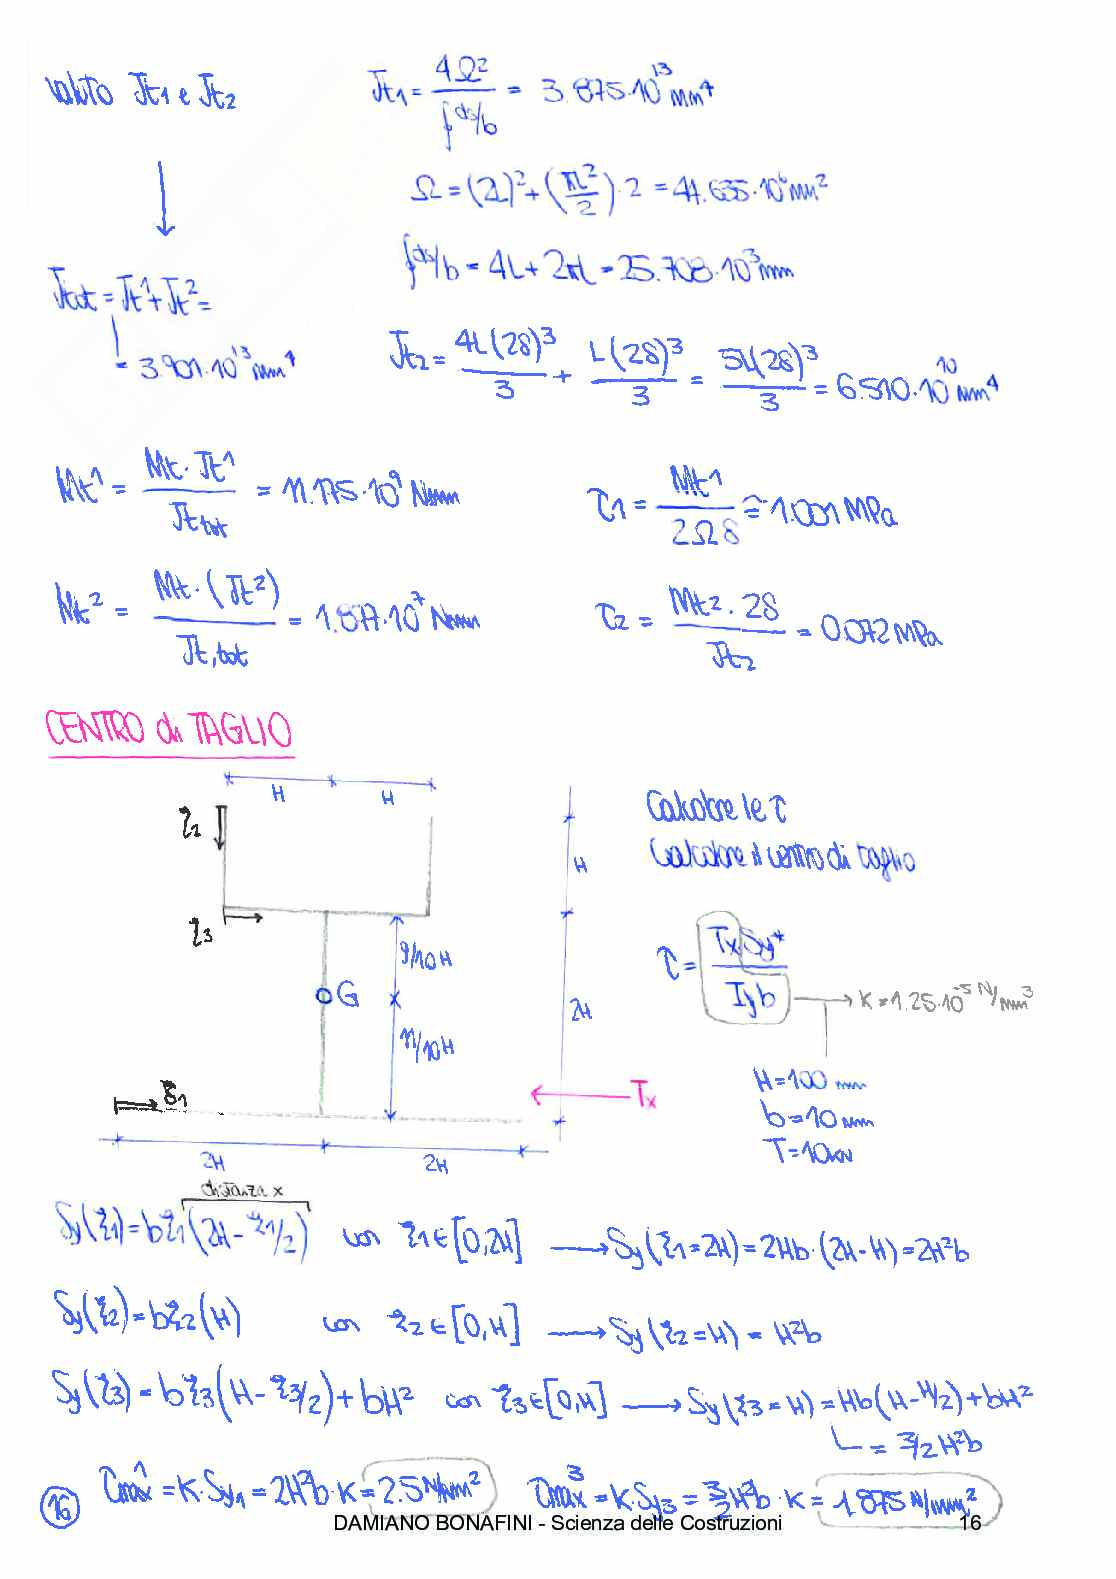 valuto Jt1 e Jt2
Jt1 = 4Ω² / ∮ds/b = 3.875·10¹³ mm⁴
Ω = (2L)² + (πL²/2)·2 = 41.635·10⁶ mm²
∮ds/b = 4L + 2πL = 25.708·10³ mm
Jtot = Jt¹ + Jt² =
= 3.901·10¹³ mm⁴
Jt2 = 4L(2δ)³/3 + L(2δ)³/3 = 5L(2δ)³/3 = 6.510·10¹⁰ mm⁴
Mt¹ = Mt·Jt¹ / Jt tot = 11.175·10⁹ Nmm
τ1 = Mt¹ / 2Ωδ ≅ 1.001 MPa
Mt² = Mt·(Jt²) / Jt,tot = 1.877·10⁷ Nmm
τ2 = Mt2·2δ / Jt2 = 0.072 MPa
CENTRO di TAGLIO
H H
ξ2
Calcolare le τ
H
Calcolare il centro di taglio
ξ3
9/10 H
τ = Tx Sy* / Iy b
G
K = 1.25·10⁻⁵ N/mm³
2H
11/10 H
H = 100 mm
ξ1
Tx
b = 10 mm
T = 10 kN
2H 2H
distanza x
Sy(ξ1) = bξ1(2H - ξ1/2) con ξ1 ∈ [0,2H] → Sy(ξ1 = 2H) = 2Hb·(2H - H) = 2H²b
Sy(ξ2) = bξ2(H) con ξ2 ∈ [0,H] → Sy(ξ2 = H) = H²b
Sy(ξ3) = bξ3(H - ξ3/2) + bH² con ξ3 ∈ [0,H] → Sy(ξ3 = H) = Hb(H - H/2) + bH²
= 3/2 H²b
τmax¹ = K·Sy1 = 2H²b·K = 2.5 N/mm² τmax³ = K·Sy3 = 3/2 H²b·K = 1.875 N/mm²
16
DAMIANO BONAFINI - Scienza delle Costruzioni 16